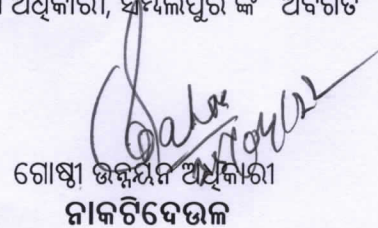 ଅଧିକାରୀ, ସମ୍ବଲପୁର ଙ୍କ ଅବଗତ
ଗୋଷ୍ଠୀ ଉନ୍ନୟନ ଅଧିକାରୀ
ନାକଟିଦେଉଳ